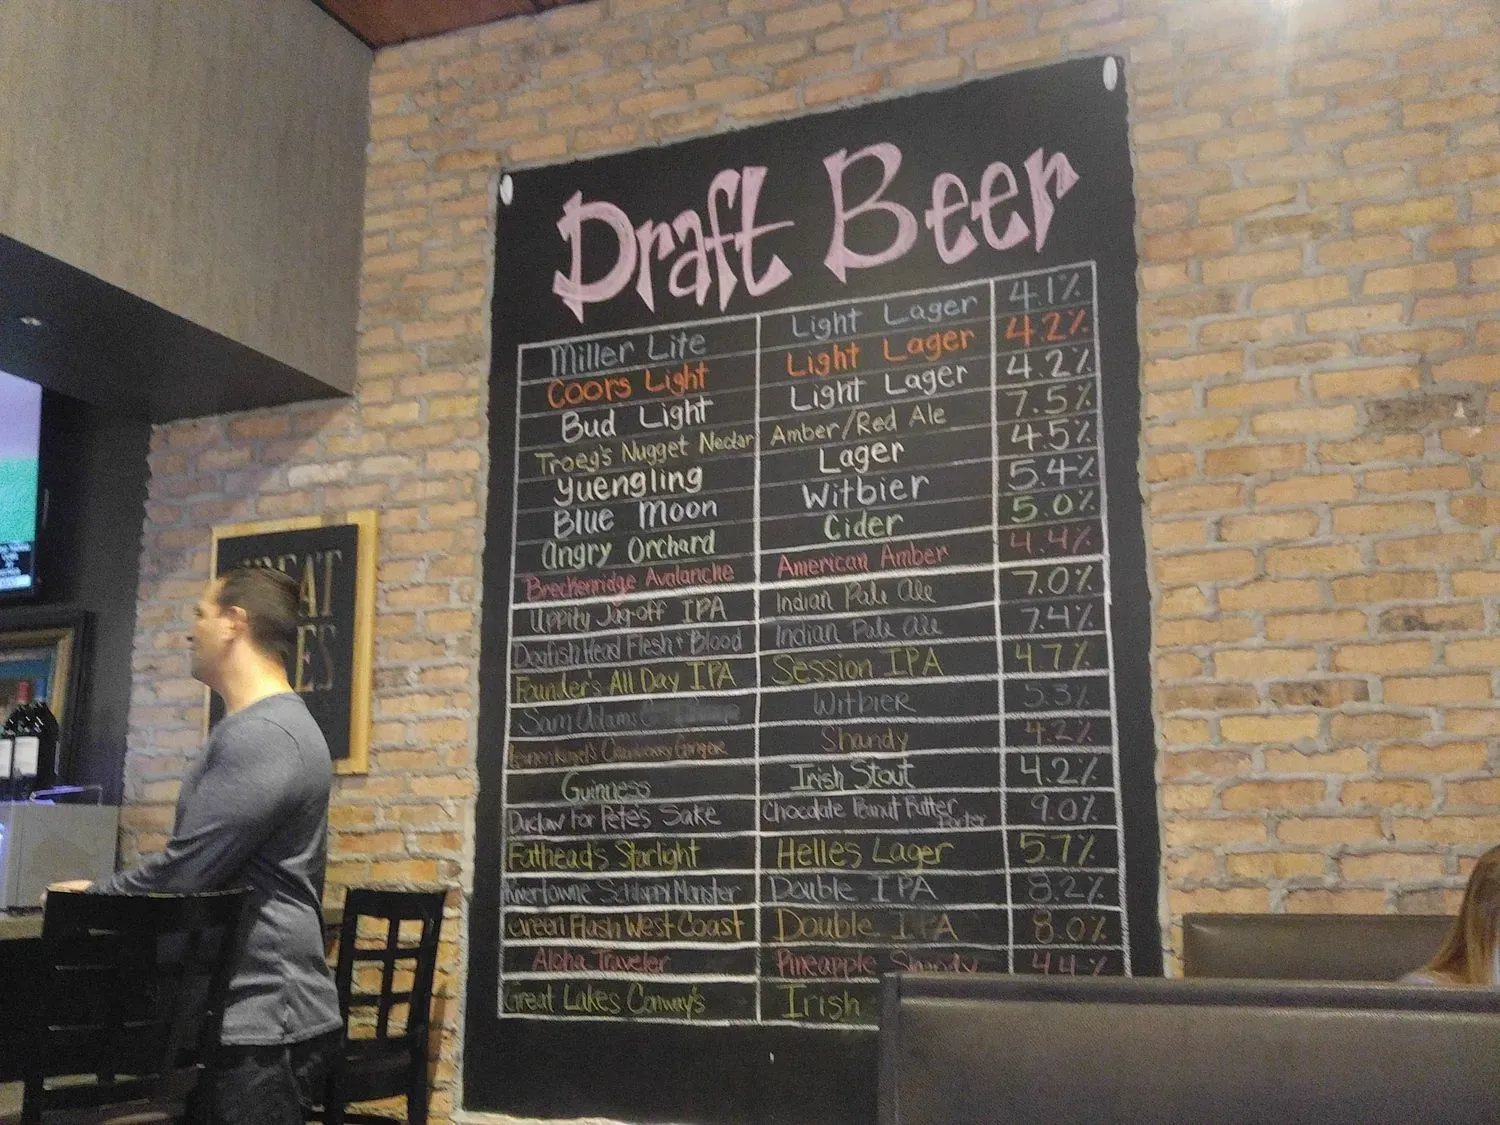 Draft Beer
Miller Lite Light Lager 4.1%
Coors Light Light Lager 4.2%
Bud Light Light Lager 4.2%
Troeg's Nugget Nectar Amber/Red Ale 7.5%
Yuengling Lager 4.5%
Blue Moon Witbier 5.4%
Angry Orchard Cider 5.0%
Breckenridge Avalanche American Amber 4.4%
Uppity Jag-off IPA Indian Pale Ale 7.0%
Dogfish Head Flesh + Blood Indian Pale Ale 7.4%
Founder's All Day IPA Session IPA 4.7%
Sam Adams Witbier 5.3%
Cranberry Ginger Shandy 4.2%
Guinness Irish Stout 4.2%
Duclaw For Pete's Sake Chocolate Peanut Butter Porter 9.0%
Fathead's Starlight Helles Lager 5.7%
Rivertowne Double IPA 8.2%
Green Flash West Coast Double IPA 8.0%
Aloha Traveler Pineapple Shandy 4.4%
Great Lakes Conway's Irish